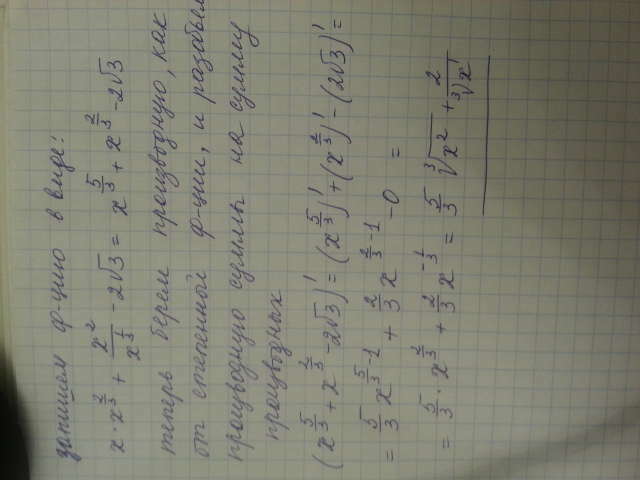 запишем ф-цию в виде:
x·x^{2/3} + x²/x^{1/3} - 2√3 = x^{5/3} + x^{2/3} - 2√3
теперь берем производную, как
от степенной ф-ции, и разобьем
производную суммы на сумму
производных
(x^{5/3} + x^{2/3} - 2√3)' = (x^{5/3})' + (x^{2/3})' - (2√3)' =
= 5/3 x^{5/3 - 1} + 2/3 x^{2/3 - 1} - 0 =
= 5/3 · x^{2/3} + 2/3 x^{-1/3} = 5/3 ∛x² + 2/(3∛x)